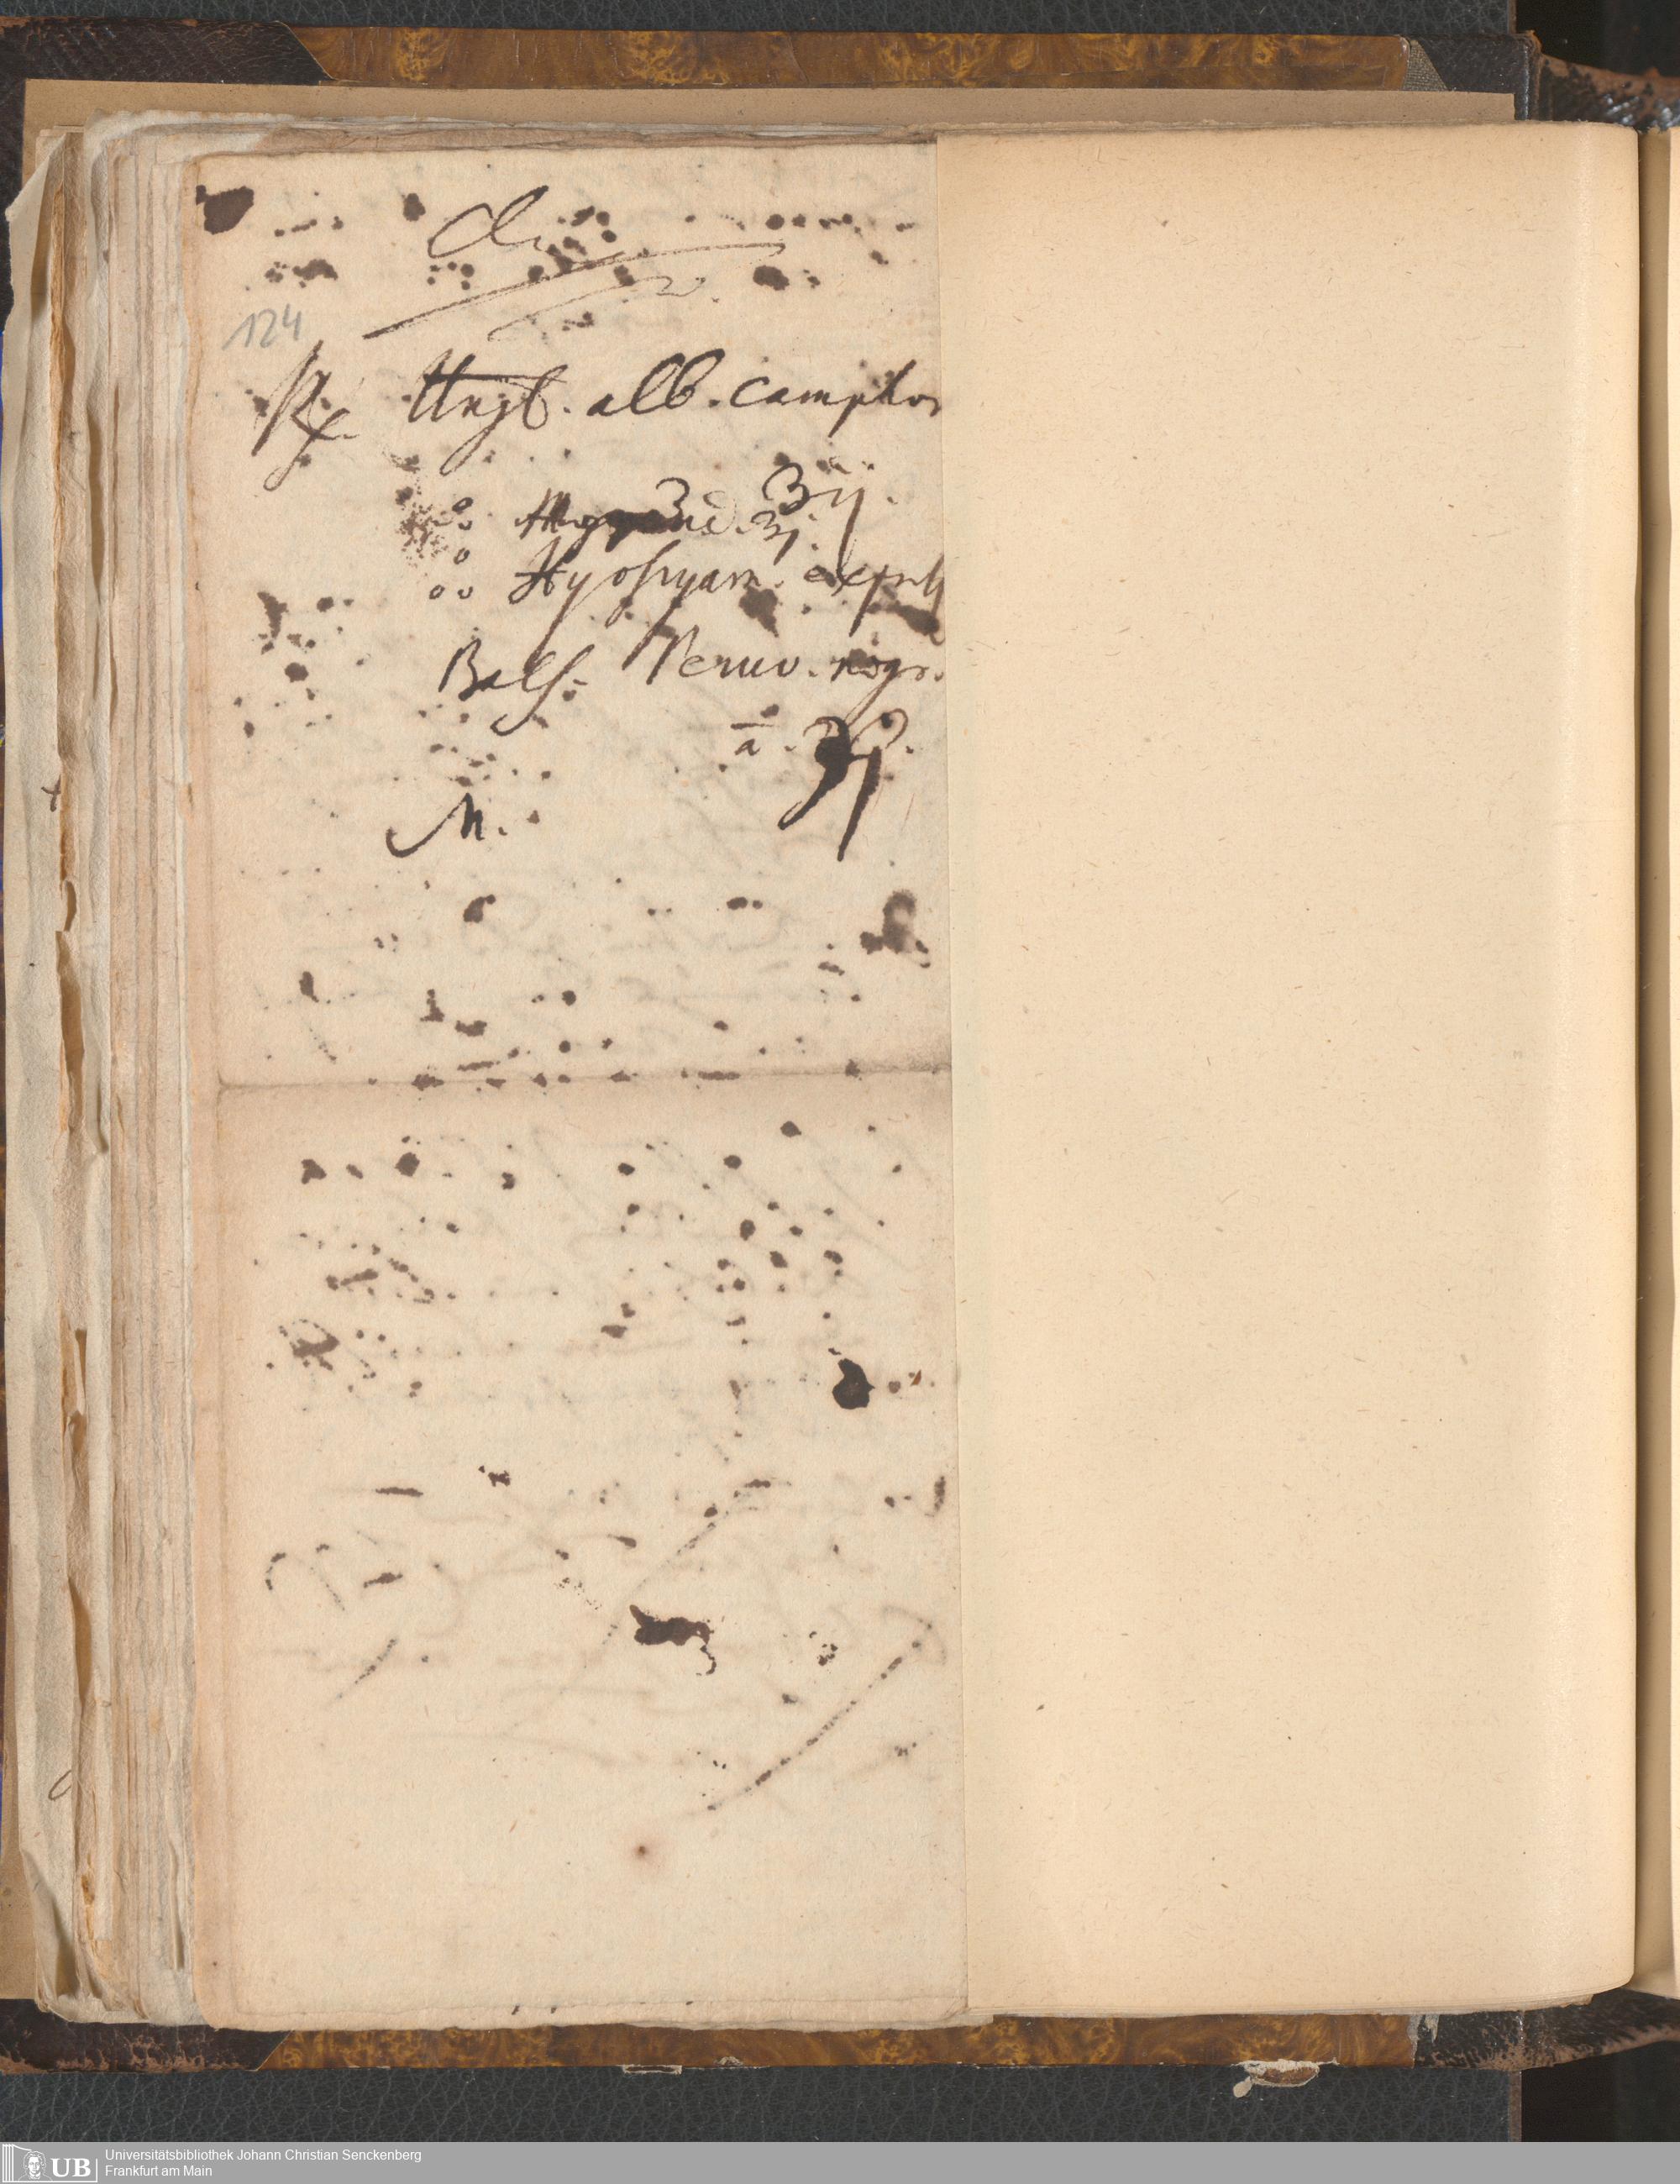 124
Rx. Ungt. alb. camphor
ʒij.
ʒj.
Hyosyam. expreſſ
Balſ. Peruv. nigr.
a. ʒß.
M.
UB Universitätsbibliothek Johann Christian Senckenberg
Frankfurt am Main